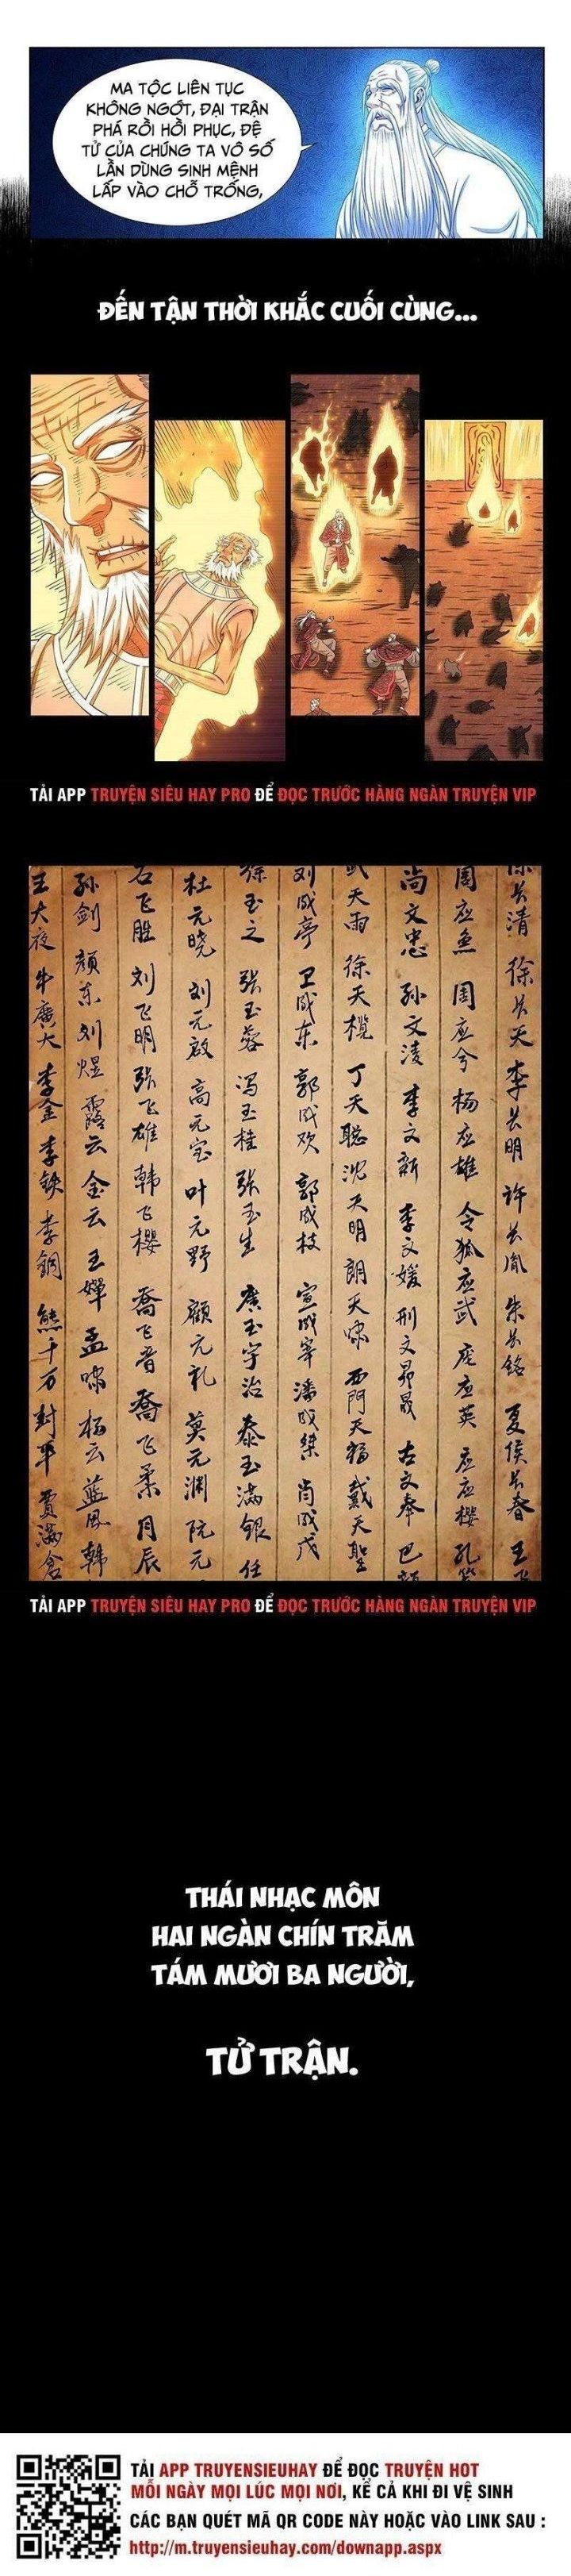 MA TỘC LIÊN TỤC
KHÔNG NGỚT, ĐẠI TRẬN
PHÁ RỒI HỒI PHỤC, ĐỆ
TỬ CỦA CHÚNG TA VÔ SỐ
LẦN DÙNG SINH MỆNH
LẤP VÀO CHỖ TRỐNG,
ĐẾN TẬN THỜI KHẮC CUỐI CÙNG...
TẢI APP TRUYỆN SIÊU HAY PRO ĐỂ ĐỌC TRƯỚC HÀNG NGÀN TRUYỆN VIP
徐长清 徐长天 李长明 许长胤 朱长铭 夏侯长春
周应鱼 周应兮 杨应雄 令狐应武 庞应英 应应樱
尚文忠 孙文凌 李文新 李文媛 刑文昴晟 古文奉
武天雨 徐天榄 丁天聪 沈天明 朗天啸 西門天福 戴天聖
刘成亭 卫成东 郭成欢 郭成枝 宣成宰 潘成桀 肖成戊
徐玉之 張玉蓉 冯玉桂 張玉生 廣玉宇治 泰玉满银 任
杜元晓 刘元啟 高元宝 叶元野 顧元礼 莫元渊 阮元
石飞胜 刘飞明 張飞雄 韩飞樱 喬飞音 喬飞柔 月辰
孙剑 顏东 刘煜 露云 金云 王婵 孟啸 杨云 蓝凤 韩
王大夜 牛廣大 李金 李铁 李銅 熊千万 封平 賈滿倉
TẢI APP TRUYỆN SIÊU HAY PRO ĐỂ ĐỌC TRƯỚC HÀNG NGÀN TRUYỆN VIP
THÁI NHẠC MÔN
HAI NGÀN CHÍN TRĂM
TÁM MƯƠI BA NGƯỜI,
TỬ TRẬN.
TẢI APP TRUYENSIEUHAY ĐỂ ĐỌC TRUYỆN HOT
MỖI NGÀY MỌI LÚC MỌI NƠI, KỂ CẢ KHI ĐI VỆ SINH
CÁC BẠN QUÉT MÃ QR CODE NÀY HOẶC VÀO LINK SAU :
http://m.truyensieuhay.com/downapp.aspx